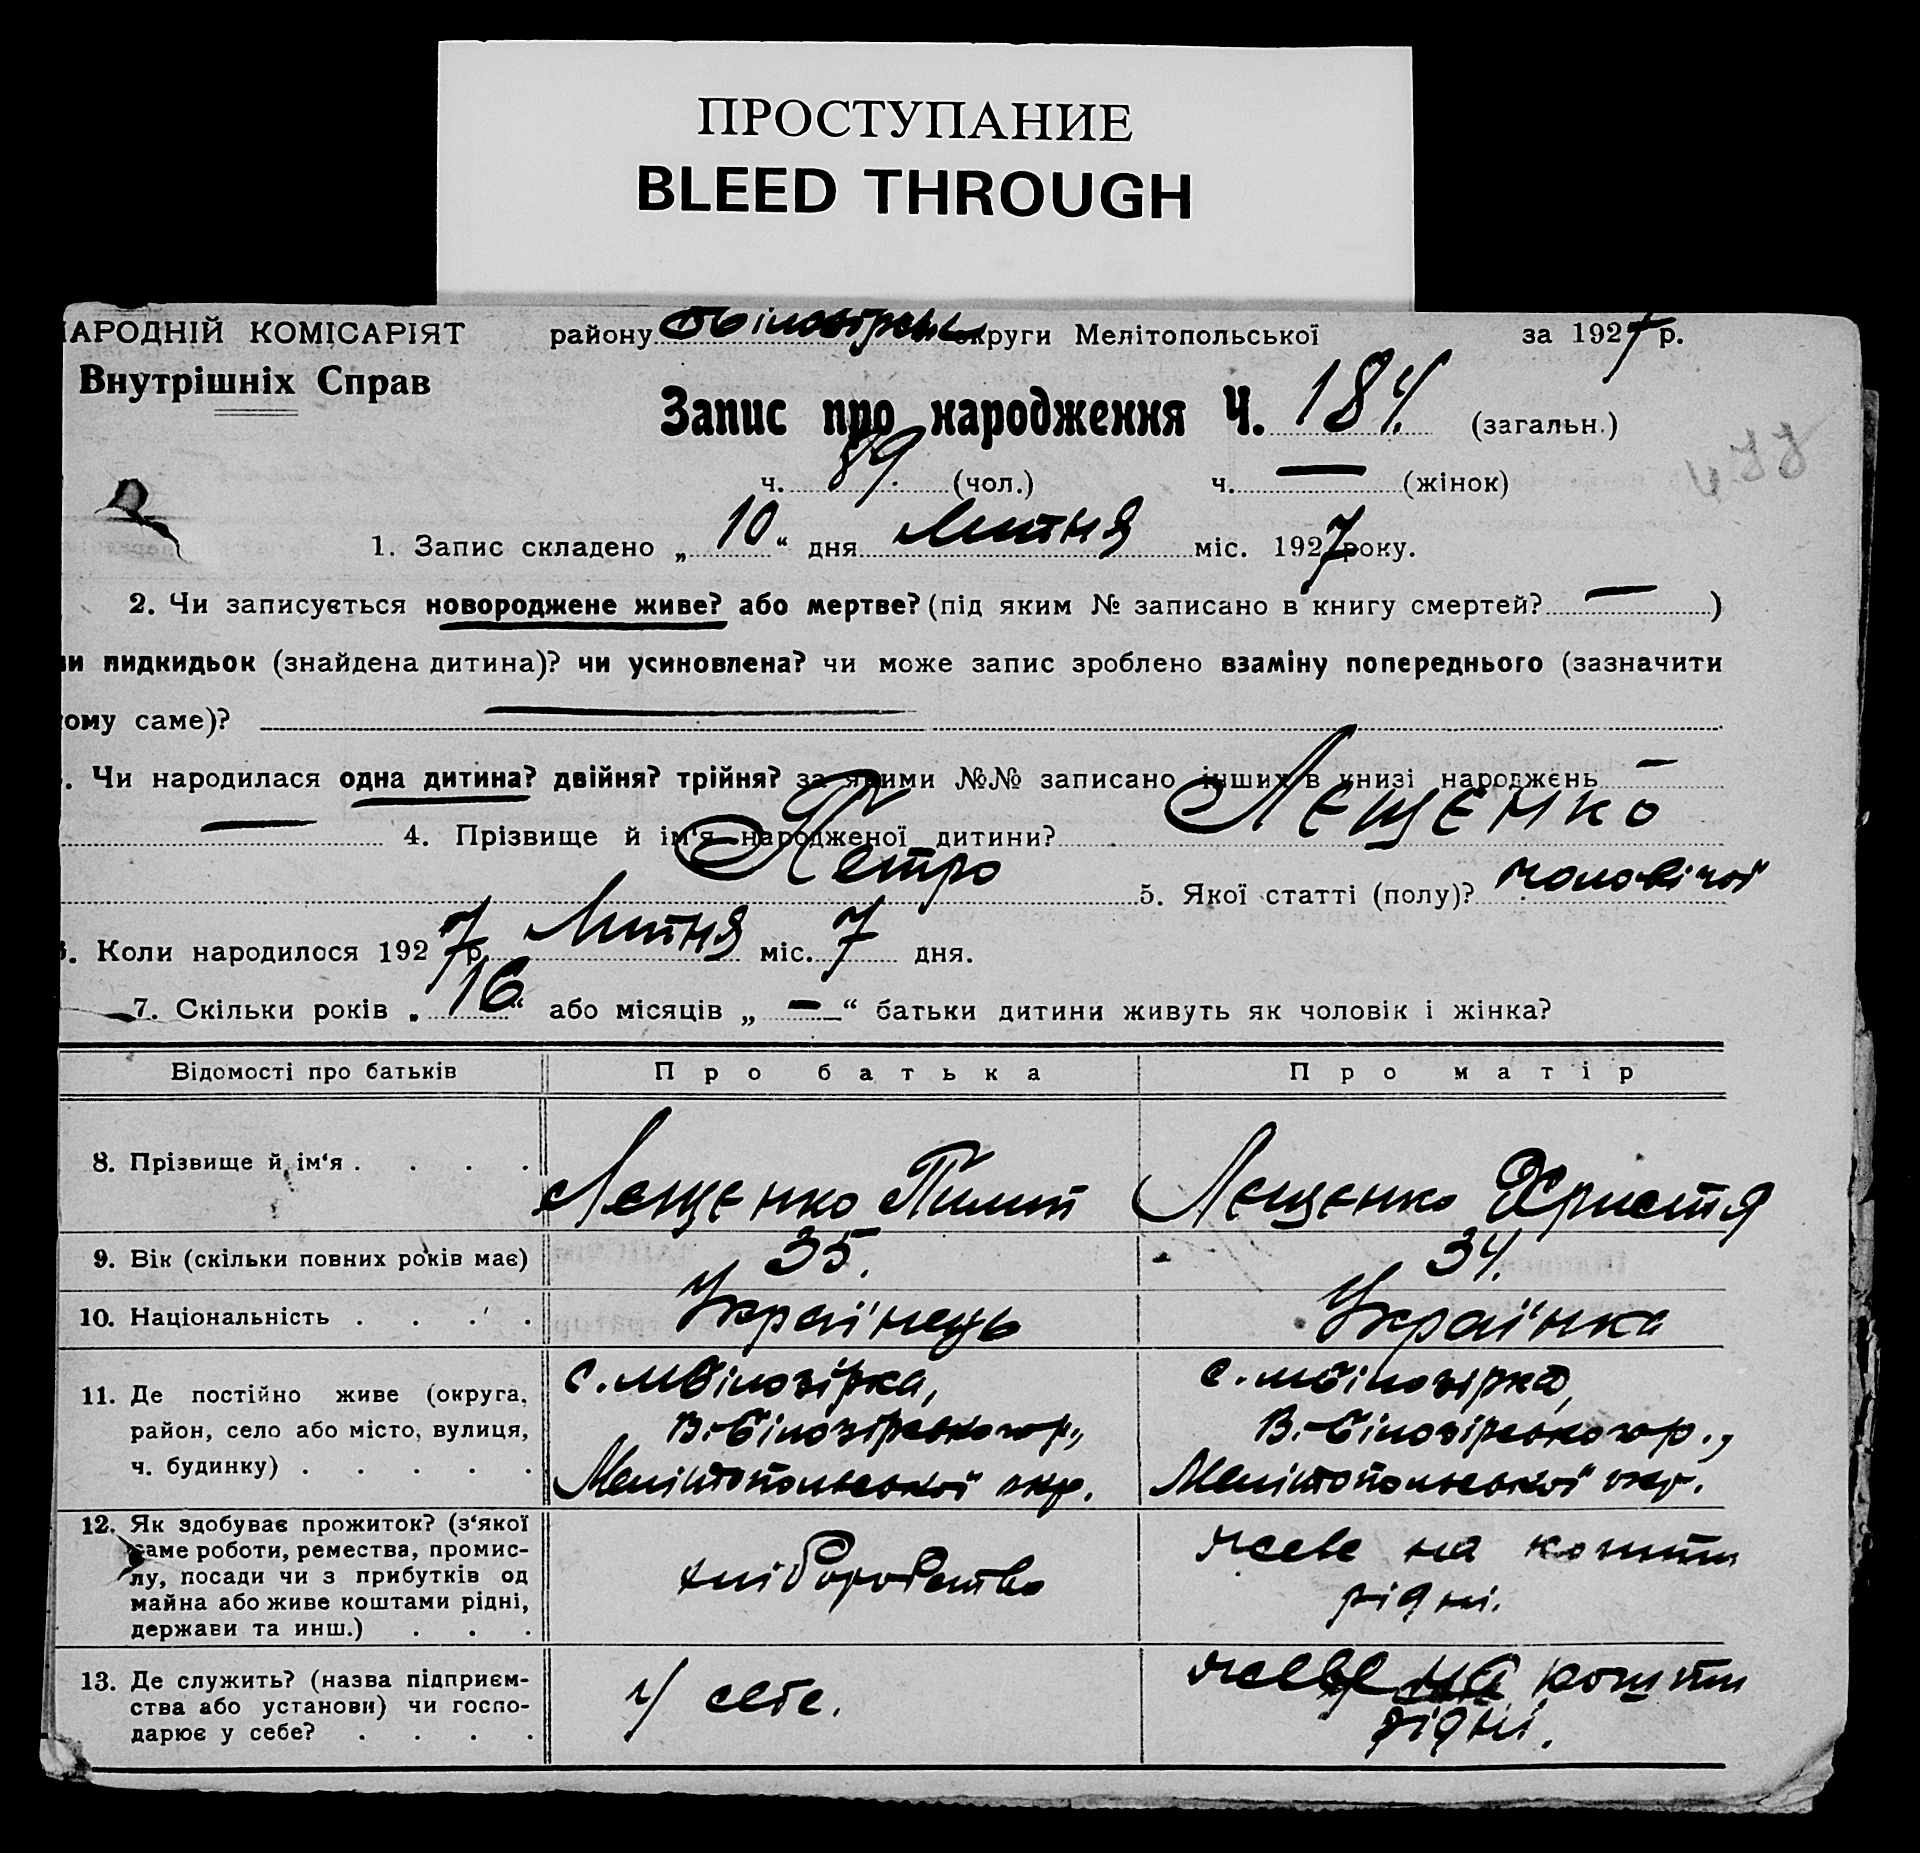 ПРОСТУПАНИЕ
BLEED THROUGH
НАРОДНІЙ КОМІСАРІЯТ району округи Мелітопольської за 1927 р.
Внутрішніх Справ
Запис про народження Ч. 184. (загальн.)
ч. 89. (чол.) ч. — (жінок)
1. Запис складено „ 10 “ дня Лютня міс. 1927 року.
2. Чи записується новороджене живе? або мертве? (під яким № записано в книгу смертей? — )
чи пидкидьок (знайдена дитина)? чи усиновлена? чи може запис зроблено взаміну попереднього (зазначити
кому саме)? —
. Чи народилася одна дитина? двійня? трійня? за якими №№ записано інших в книзі народжень —
— 4. Прізвище й ім'я народженої дитини? Лещенко
Петро 5. Якої статті (полу)? чоловічої
6. Коли народилося 1927 р. Лютня міс. 7 дня.
7. Скільки років „ 16 “ або місяців „ — “ батьки дитини живуть як чоловік і жінка?
Відомості про батьків Про батька Про матір
8. Прізвище й ім'я . . . . Лещенко Пилип Лещенко Христя
9. Вік (скільки повних років має) 35. 34.
10. Національність . . . . Українець Українка
11. Де постійно живе (округа, с. МБілозірка, с. МБілозірка,
район, село або місто, вулиця, В.-Білозірського р., В.-Білозірського р.,
ч. будинку) . . . . . Мелітопольської окр. Мелітопольської окр.
12. Як здобуває прожиток? (з'якої
саме роботи, ремества, промис- живе на кошти
лу, посади чи з прибутків од хліборобство
майна або живе коштами рідні, рідні.
держави та инш.) . . .
13. Де служить? (назва підприєм- живе на кошти
ства або установи) чи госпо- У себе. рідні.
дарює у себе? . . . .